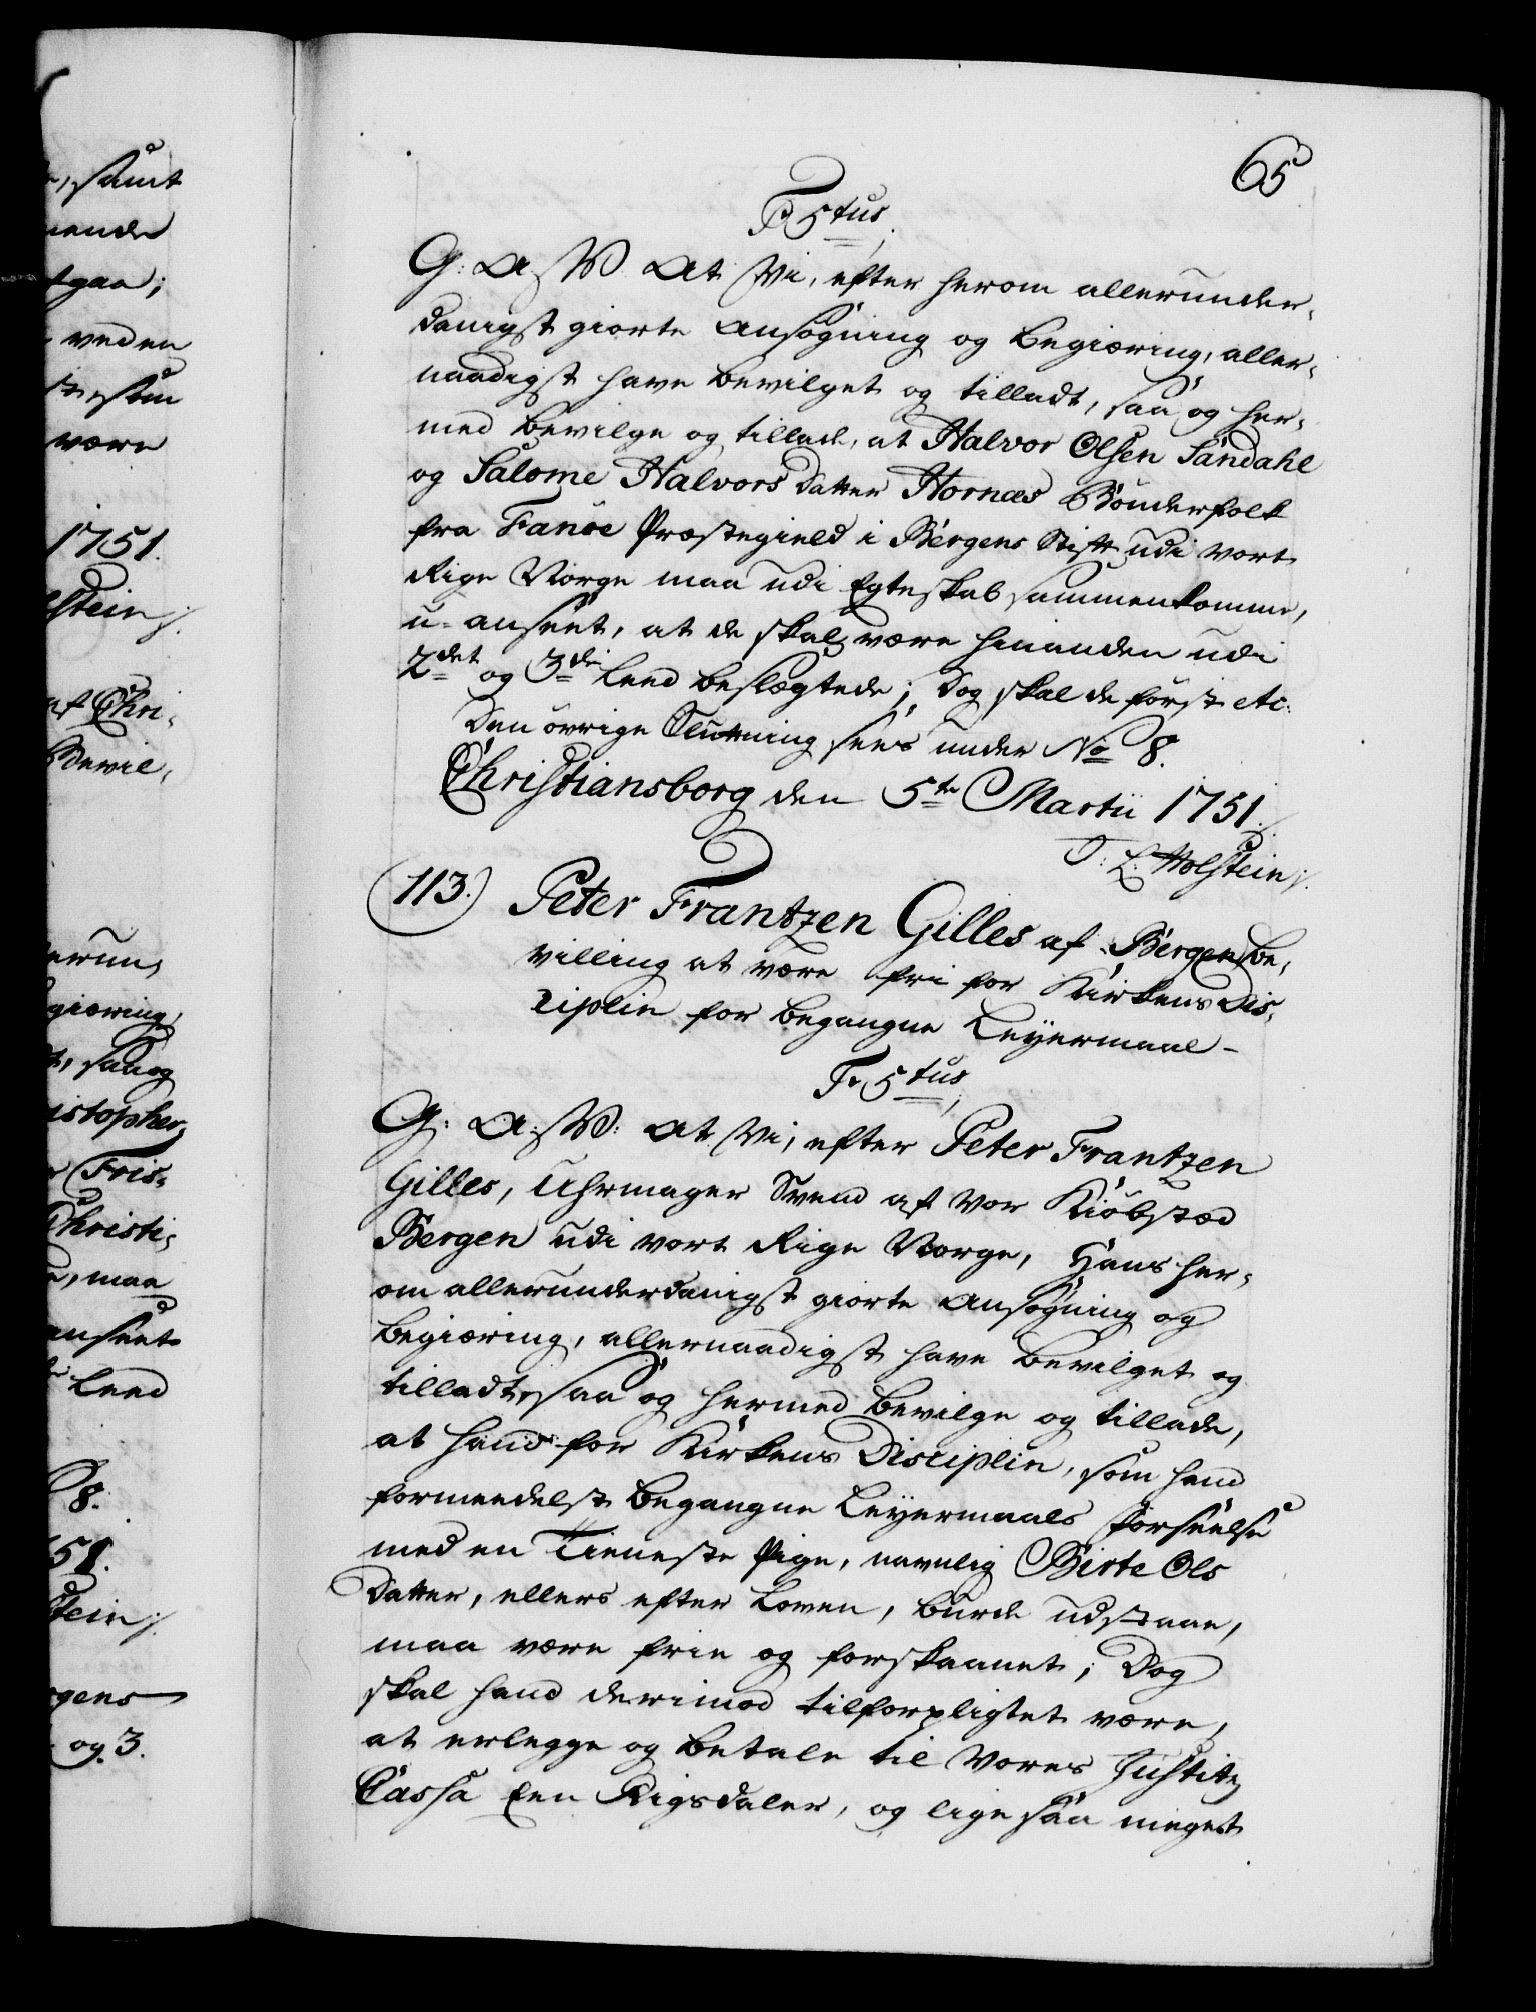 , samt
nende
tgaa;
veden
som
være
1751.
lstein ./.
af Chri-
Bevil-
erun-
giæring,
saa og
istopher
Fris-
Christi-
, maa
anseet
Leed
8.
51.
tein ./.
gens
og 3.
65
Fr 5tus.
G: A: W: At Vi, efter herom allerunder-
danigst giorte Ansøgning og Begiæring, aller-
naadigst have bevilget og tilladt, saa og her-
med bevilge og tillade, at Halvor Olsen Sandahl
og Salome Halvors Datter Hornæs Bønderfolk
fra Fanøe Præstegield i Bergens Stift udi vort
Rige Norge maa udi Egteskab sammenkomme,
u-anseet, at de skal være hinanden udi
2det og 3die Leed beslægtede; Dog skal de først etc:
Den øvrige Slutning sees under No 8.
Christiansborg den 5te Martii 1751 ./.
J: L: Holstein ./.
(113.) Peter Frantzen Gilles af Bergen Be-
villing at være fri for Kirkens Dis-
ciplin for begangne Leyermaal -
Fr 5tus,
G: A: W: At Vi, efter Peter Frantzen
Gilles, Uhrmager Svend af vor Kiøbstæd
Bergen udi vort Rige Norge, Hans her-
om allerunderdanigst giorte Ansøgning og
Begiæring, allernaadigst have bevilget og
tilladt, saa og hermed bevilge og tillade,
at hand for Kirkens Disciplin, som hand
formedelst begangne Leyermaals Forseelse
med en Tieneste Pige, navnlig Birte Ols
Datter, ellers efter Loven, burde udstaae,
maa være frie og forskaanet; Dog
skal hand derimod tilforpligtet være,
at erlegge og betale til Vores Justitz
Cassa Een Rigsdaler, og lige saa meget